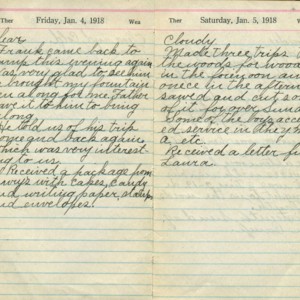 Friday, Jan. 4, 1918
Wea
lear
Frank came back to
mp this evening again
was very glad to see him
brought my fountain
n along for me. Father
ve it to him to bring
long.
told us of his trip
ome and back again
which was very interest
ng to us.
Received a package from
with cakes, candy
nd writing paper, stamps
nd envelopes.
Ther
Saturday, Jan. 5, 1918
Wea
Cloudy
Made three trips
the woods for wood
in the forenoon an
onece in the aftern
sawed and cut so
of it for over
Some of the boys
ed service in the y
a. etc.
Received a letter f
Laura.